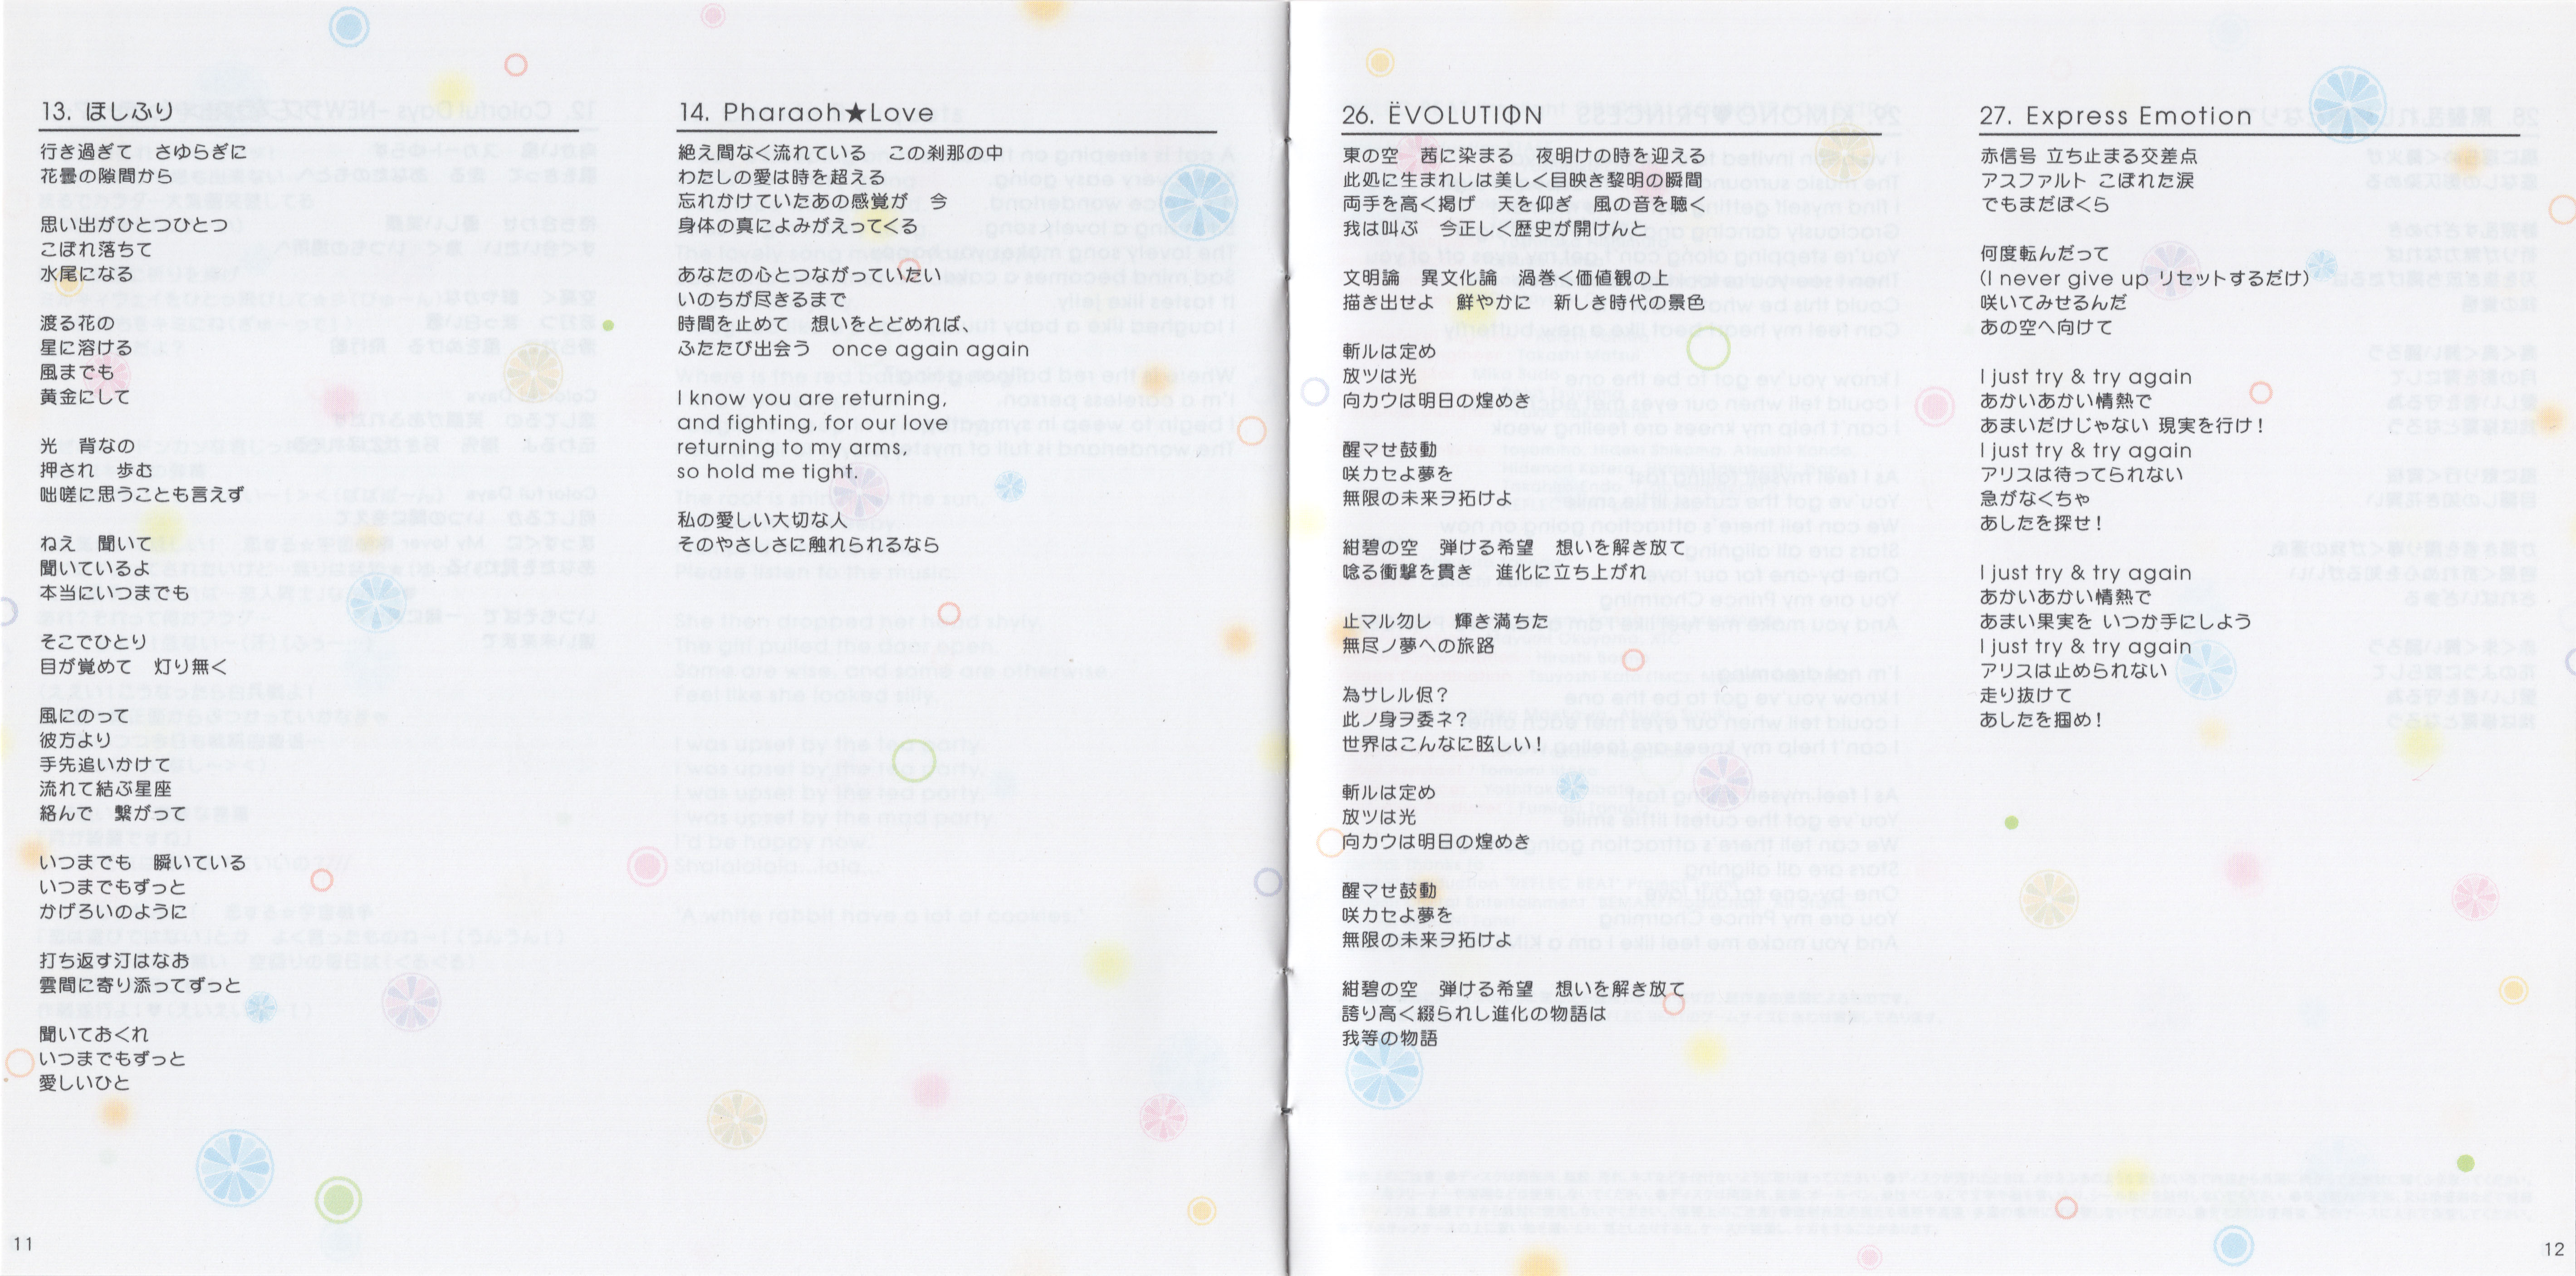 13. ほしふり
行き過ぎて　さゆらぎに
花曇の隙間から
思い出がひとつひとつ
こぼれ落ちて
水尾になる
渡る花の
星に溶ける
風までも
黄金にして
光　背なの
押され　歩む
咄嗟に思うことも言えず
ねえ　聞いて
聞いているよ
本当にいつまでも
そこでひとり
目が覚めて　灯り無く
風にのって
彼方より
手先追いかけて
流れて結ぶ星座
絡んで　繋がって
いつまでも　瞬いている
いつまでもずっと
かげろいのように
打ち返す汀はなお
雲間に寄り添ってずっと
聞いておくれ
いつまでもずっと
愛しいひと
11
14. Pharaoh★Love
絶え間なく流れている　この刹那の中
わたしの愛は時を超える
忘れかけていたあの感覚が　今
身体の真によみがえってくる
あなたの心とつながっていたい
いのちが尽きるまで
時間を止めて　想いをとどめれば、
ふたたび出会う　once again again
I know you are returning,
and fighting, for our love
returning to my arms,
so hold me tight.
私の愛しい大切な人
そのやさしさに触れられるなら
26. ËVOLUTIΦN
東の空　茜に染まる　夜明けの時を迎える
此処に生まれしは美しく目映き黎明の瞬間
両手を高く掲げ　天を仰ぎ　風の音を聴く
我は叫ぶ　今正しく歴史が開けんと
文明論　異文化論　渦巻く価値観の上
描き出せよ　鮮やかに　新しき時代の景色
斬ルは定め
放ツは光
向カウは明日の煌めき
醒マせ鼓動
咲カセよ夢を
無限の未来ヲ拓けよ
紺碧の空　弾ける希望　想いを解き放て
唸る衝撃を貫き　進化に立ち上がれ
止マル勿レ　輝き満ちた
無尽ノ夢への旅路
為サレル侭？
此ノ身ヲ委ネ？
世界はこんなに眩しい！
斬ルは定め
放ツは光
向カウは明日の煌めき
醒マせ鼓動
咲カセよ夢を
無限の未来ヲ拓けよ
紺碧の空　弾ける希望　想いを解き放て
誇り高く綴られし進化の物語は
我等の物語
27. Express Emotion
赤信号 立ち止まる交差点
アスファルト こぼれた涙
でもまだぼくら
何度転んだって
(I never give up リセットするだけ)
咲いてみせるんだ
あの空へ向けて
I just try & try again
あかいあかい情熱で
あまいだけじゃない 現実を行け！
I just try & try again
アリスは待ってられない
急がなくちゃ
あしたを探せ！
I just try & try again
あかいあかい情熱で
あまい果実を いつか手にしよう
I just try & try again
アリスは止められない
走り抜けて
あしたを掴め！
12